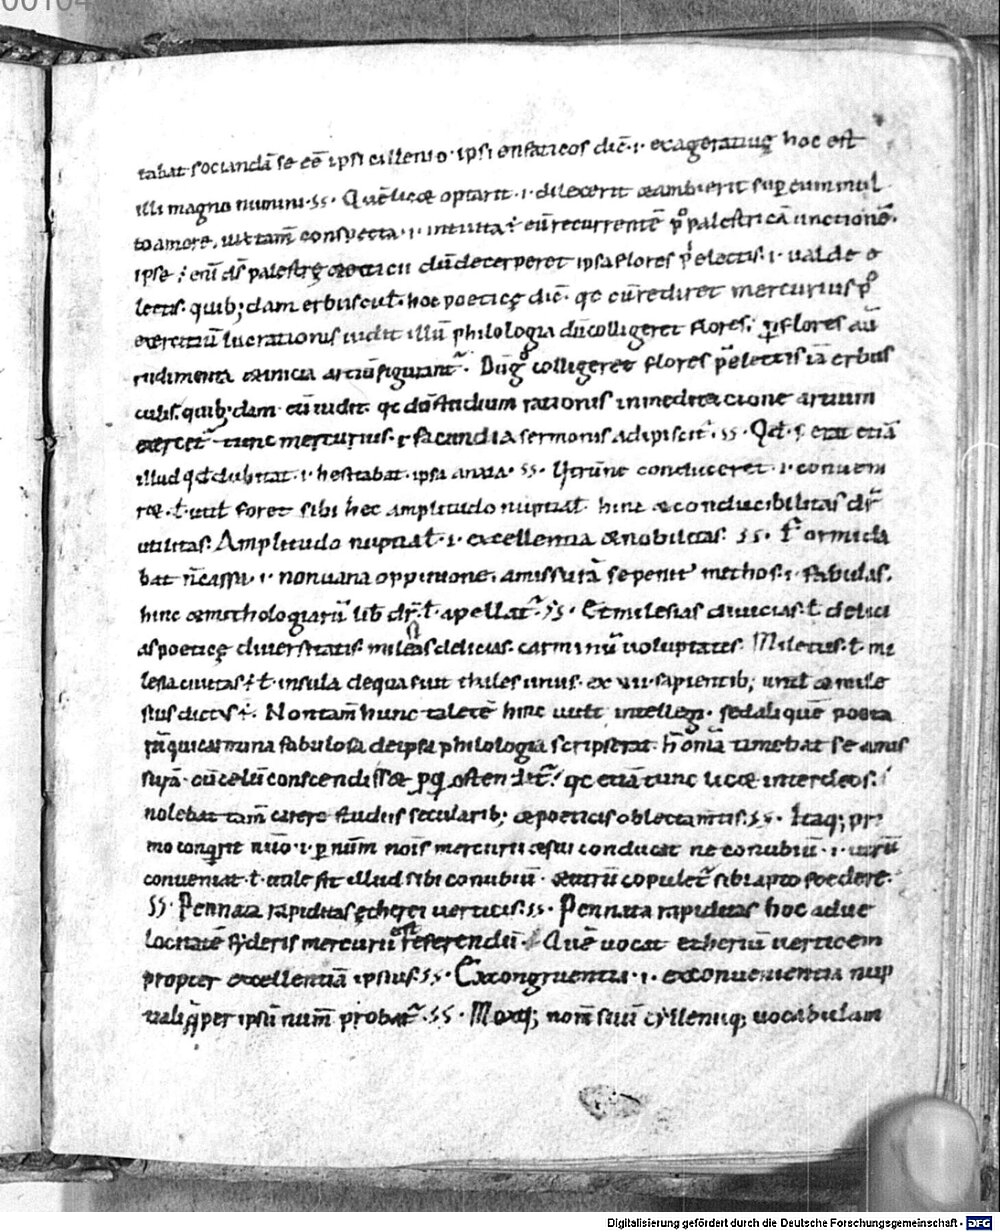 00104
tabat sociandā se eē ipsi cillenio · ipsi enfaticos dic̄ · i · exageratiuę hoc est
illi magno numini · ss · Quē licæ optarit · i · dilexerit æambierit sup eum mul
to amore, uix tam̄ conspecta · i · intuita ÷ eū recurrentē p̊ palestricā unctionē ·
ipse ÷ eni ds̄ palestrę dū decerperet ipsa flores p̄electis · i · ualde e
lectis · quib; dam erbuscul̄ · hoc poeticę dic̄ · qc cū rediret mercurius p̊
exercitiū luctationis uidit illū philologia dū colligeret flores; p flores aū
rudimenta æinicia artiū figurant᷑ · Dū g̊ colligeret flores p̄electis iā erbus
culis · quib; dam eū uidit · qc dū studium rationis in meditacione artium
exercet᷑ tunc mercurius · i · facundia sermonis adipiscit᷑ · ss · Qd̄ · s · erat etiā
illud qd̄ dubitat · i · hesitabat · ipsi anxia · ss · Utrūne conduceret · i · conueni
ræ · ł · util̄ foret sibi hec amplitudo nuptial̄ · hinc æconducibilitas dr᷑
utilitas · Amplitudo nuptial̄ · i · excellentia ænobilitas · ss · Formida
bat n̄cassa · i · non uana oppinione, amissurā se penit᷒ mithos · i · fabulas,
hinc æmithologiarū lib dr᷑ · ł · apellat᷑ · ss · Et milesias diuicias · ł · delici
as poeticę diuersitatis · milesias delicias · carminū uoluptates · Miletus · ł · mi
lesia ciuitas ÷ ł · insula de qua fuit thales unus · ex uii · sapientib; unđ æmile
sius dictus ÷ · Non tam̄ hunc taletē hinc uult intelleg̅i · sed aliquē poeta
rū qui carmina fabulosa de ipsa philologia scripserat · h̄ om̄ia timebat se amis
surā · cū celū conscendissæ p qđ ostendit᷑ qc etiā tunc licæ inter deos ·
nolebat tam̄ carere studiis secularib; æpoeticis oblectam̄tis · ss · Itaq; pri
mo conqrit nūo · i · p num̄ nōis mercurii æsui conducat ne conubiū · i · utrū
conueniat · ł · utile sit illud sibi conubiū · æutrū copulet᷑ sibi apto foedere ·
ss · Pennata rapiditas ętherei uerticis · ss · Pennata rapiditas hoc ad ue
locitatē syderis mercurii est referendū · Quē uocat etheriū uerticem
propter excellentiā ipsius · ss · Ex congruentia · i · ex conuenientia nup
tiali q̄ per ipsū num̄ probat᷑ · ss · Moxq; nom̄ suū cylleniiq; uocabulam
Digitalisierung gefördert durch die Deutsche Forschungsgemeinschaft - DFG